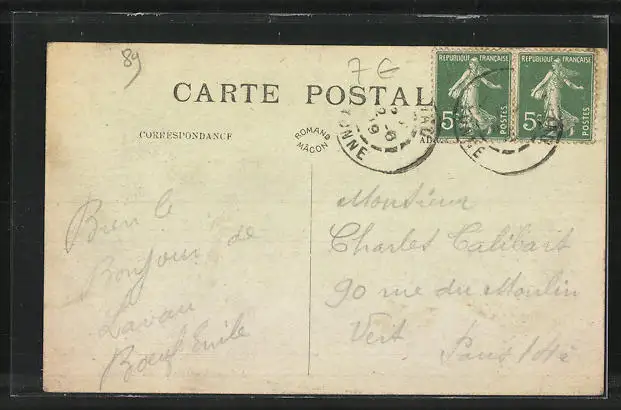 89
7 €
CARTE POSTAL
CORRESPONDANCE
ROMAND
MÂCON
YONNE
REPUBLIQUE FRANÇAISE
POSTES
5c
REPUBLIQUE FRANÇAISE
POSTES
5c
Bien le
Bonjour de
Lavau
Bœuf Emile
Monsieur
Charles Calibart
90 rue du Moulin
Vert
Paris 14è